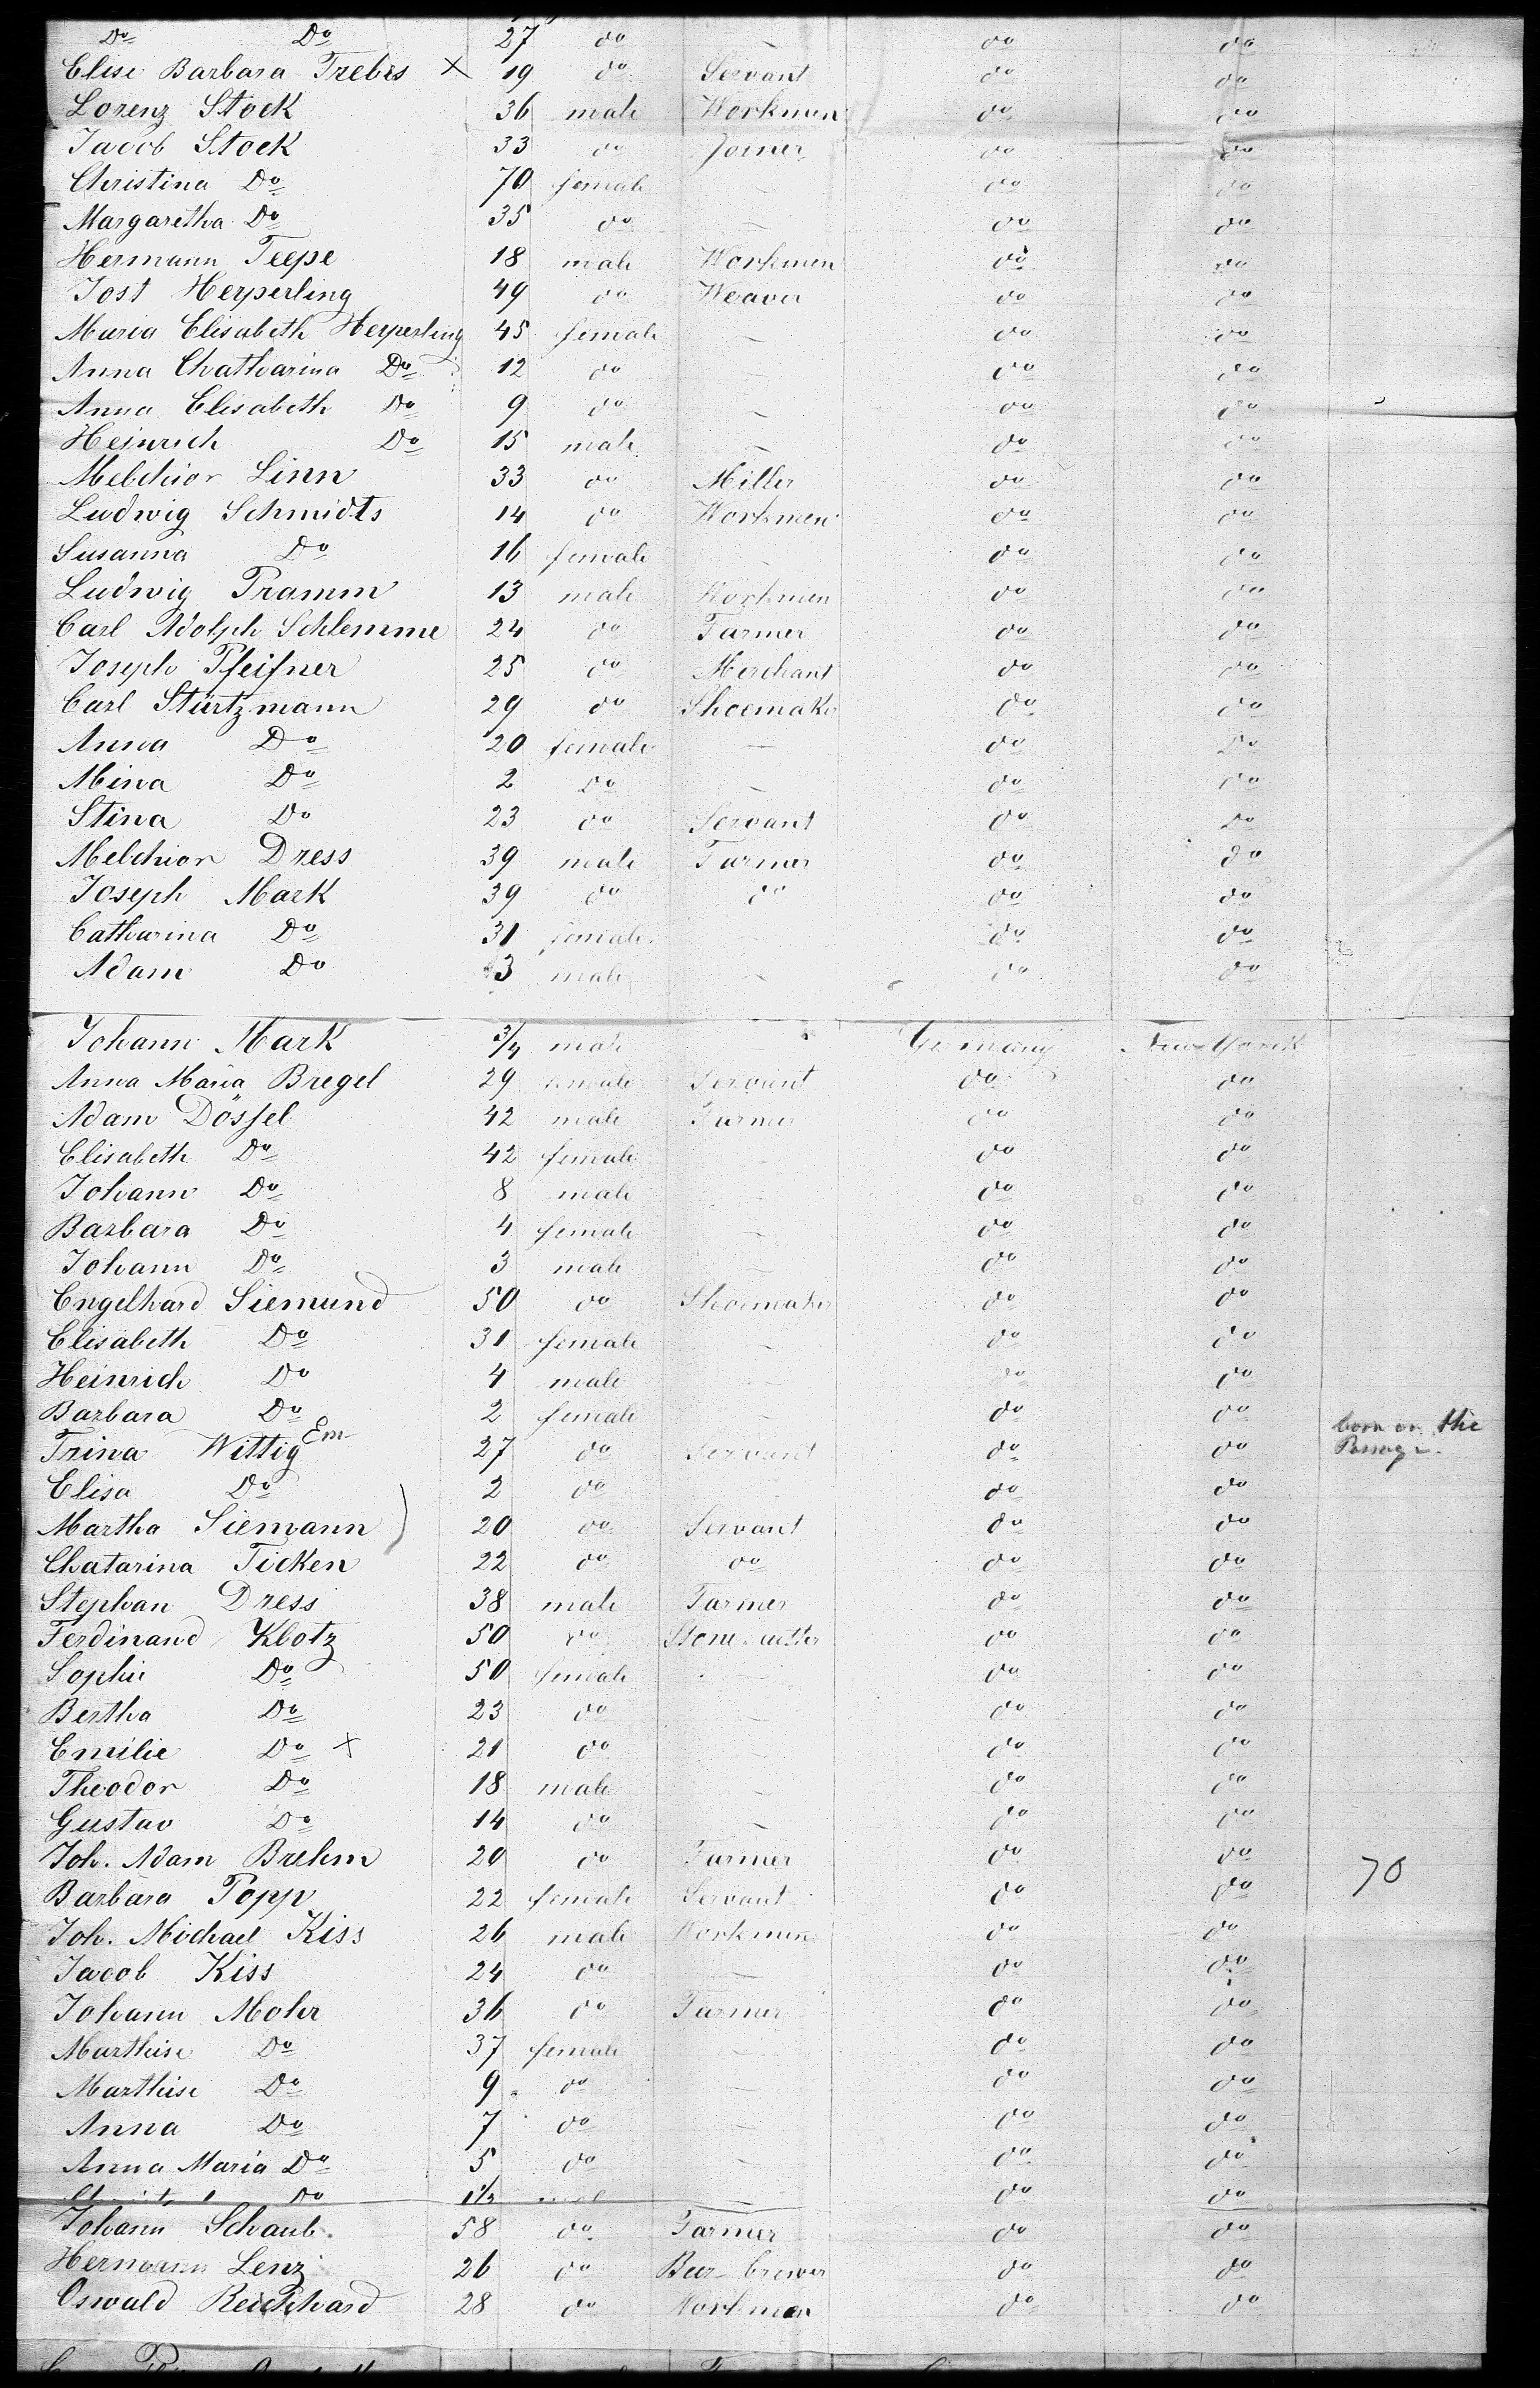 Do Do 27 do — do do
Elise Barbara Trebes X 19 do Servant do do
Lorenz Stock 36 male Workmen do do
Jacob Stock 33 do Joiner do do
Christina Do 70 female — do do
Margaretha Do 35 do — do do
Hermann Teepe 18 male Workmen do do
Jost Heyperling 49 do Weaver do do
Maria Elisabeth Heyperling 45 female — do do
Anna Chatharina Do 12 do — do do
Anna Elisabeth Do 9 do — do do
Heinrich Do 15 male — do do
Melchior Linn 33 do Miller do do
Ludwig Schmidts 14 do Workmen do do
Susanna Do 16 female - do do
Ludwig Pramm 13 male Workmen do do
Carl Adolph Schlemme 24 do Farmer do do
Joseph Pfeifner 25 do Merchant do do
Carl Stürtzmann 29 do Shoemaker do do
Anna Do 20 female — do do
Mina Do 2 Do — do do
Stina Do 23 do Servant do Do
Melchior Dress 39 male Farmer do do
Joseph Mark 39 do do do do
Catharina Do 31 female - do do
Adam Do 3 male — do do
Johann Mark 3/4 male Germany New Yorck
Anna Maria Bregel 29 female Servant do do
Adam Dössel 42 male Farmer do do
Elisabeth Do 42 female do do
Johann Do 8 male — do do
Barbara Do 4 female — do do
Johann Do 3 male — do do
Engelhard Siemund 50 do Shoemaker do do
Elisabeth Do 31 female — do do
Heinrich Do 4 male — do do
Barbara Do 2 female - do do born on the
Trina Wittig Em 27 do Servant do do Passage.
Elisa Do 2 do - do do
Martha Siemann 20 do Servant do do
Chatarina Ticken 22 do do do do
Stephan Dress 38 male Farmer do do
Ferdinand Klotz 50 do Stone-cutter do do
Sophie Do 50 female — do do
Bertha Do 23 do — do do
Emilie Do X 21 do do do
Theodor Do 18 male — do do
Gustav Do 14 do — do do
Joh. Adam Brehm 20 do Farmer do do 70
Barbara Popp 22 female Servant do do
Joh. Michael Kiss 26 male Workmen do do
Jacob Kiss 24 do — do do
Johann Mohr 36 do Farmer do do
Marthise Do 37 female — do do
Marthise Do 9 do — do do
Anna Do 7 do — do do
Anna Maria Do 5 do — do do
Do 1½ — do do
Johann Schaub. 58 do Farmer do do
Hermann Lenz 26 do Beer-brewer do do
Oswald Reichhard 28 do Workmen do do